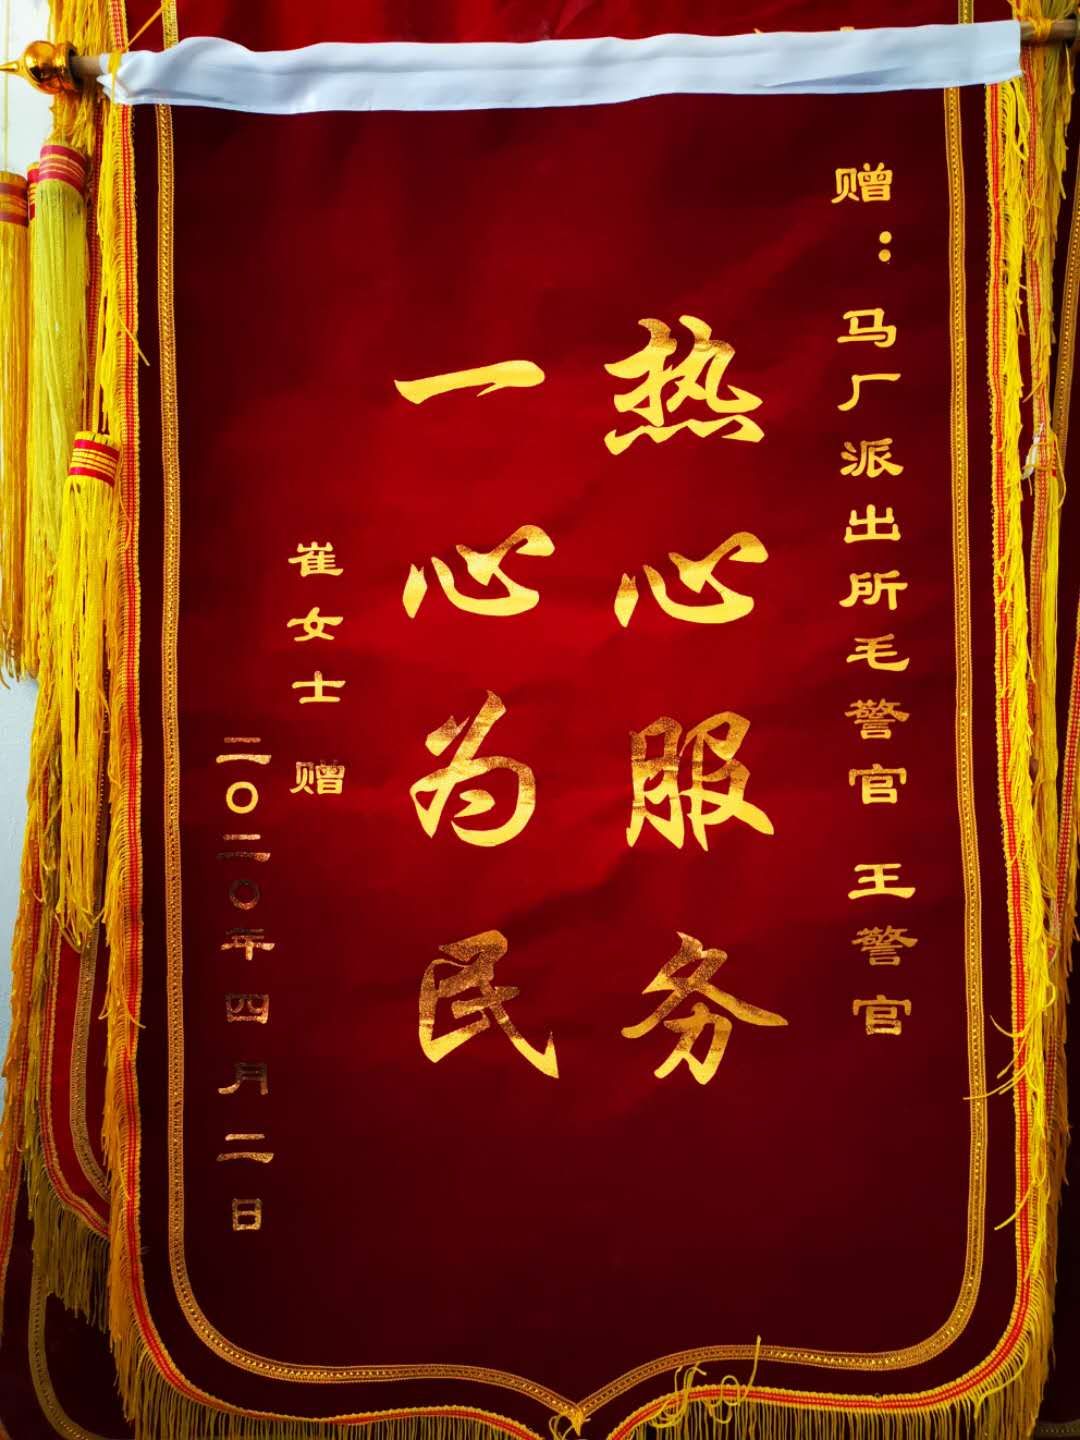 赠：马厂派出所毛警官 王警官
热心服务
一心为民
崔女士 赠
二〇二〇年四月二日